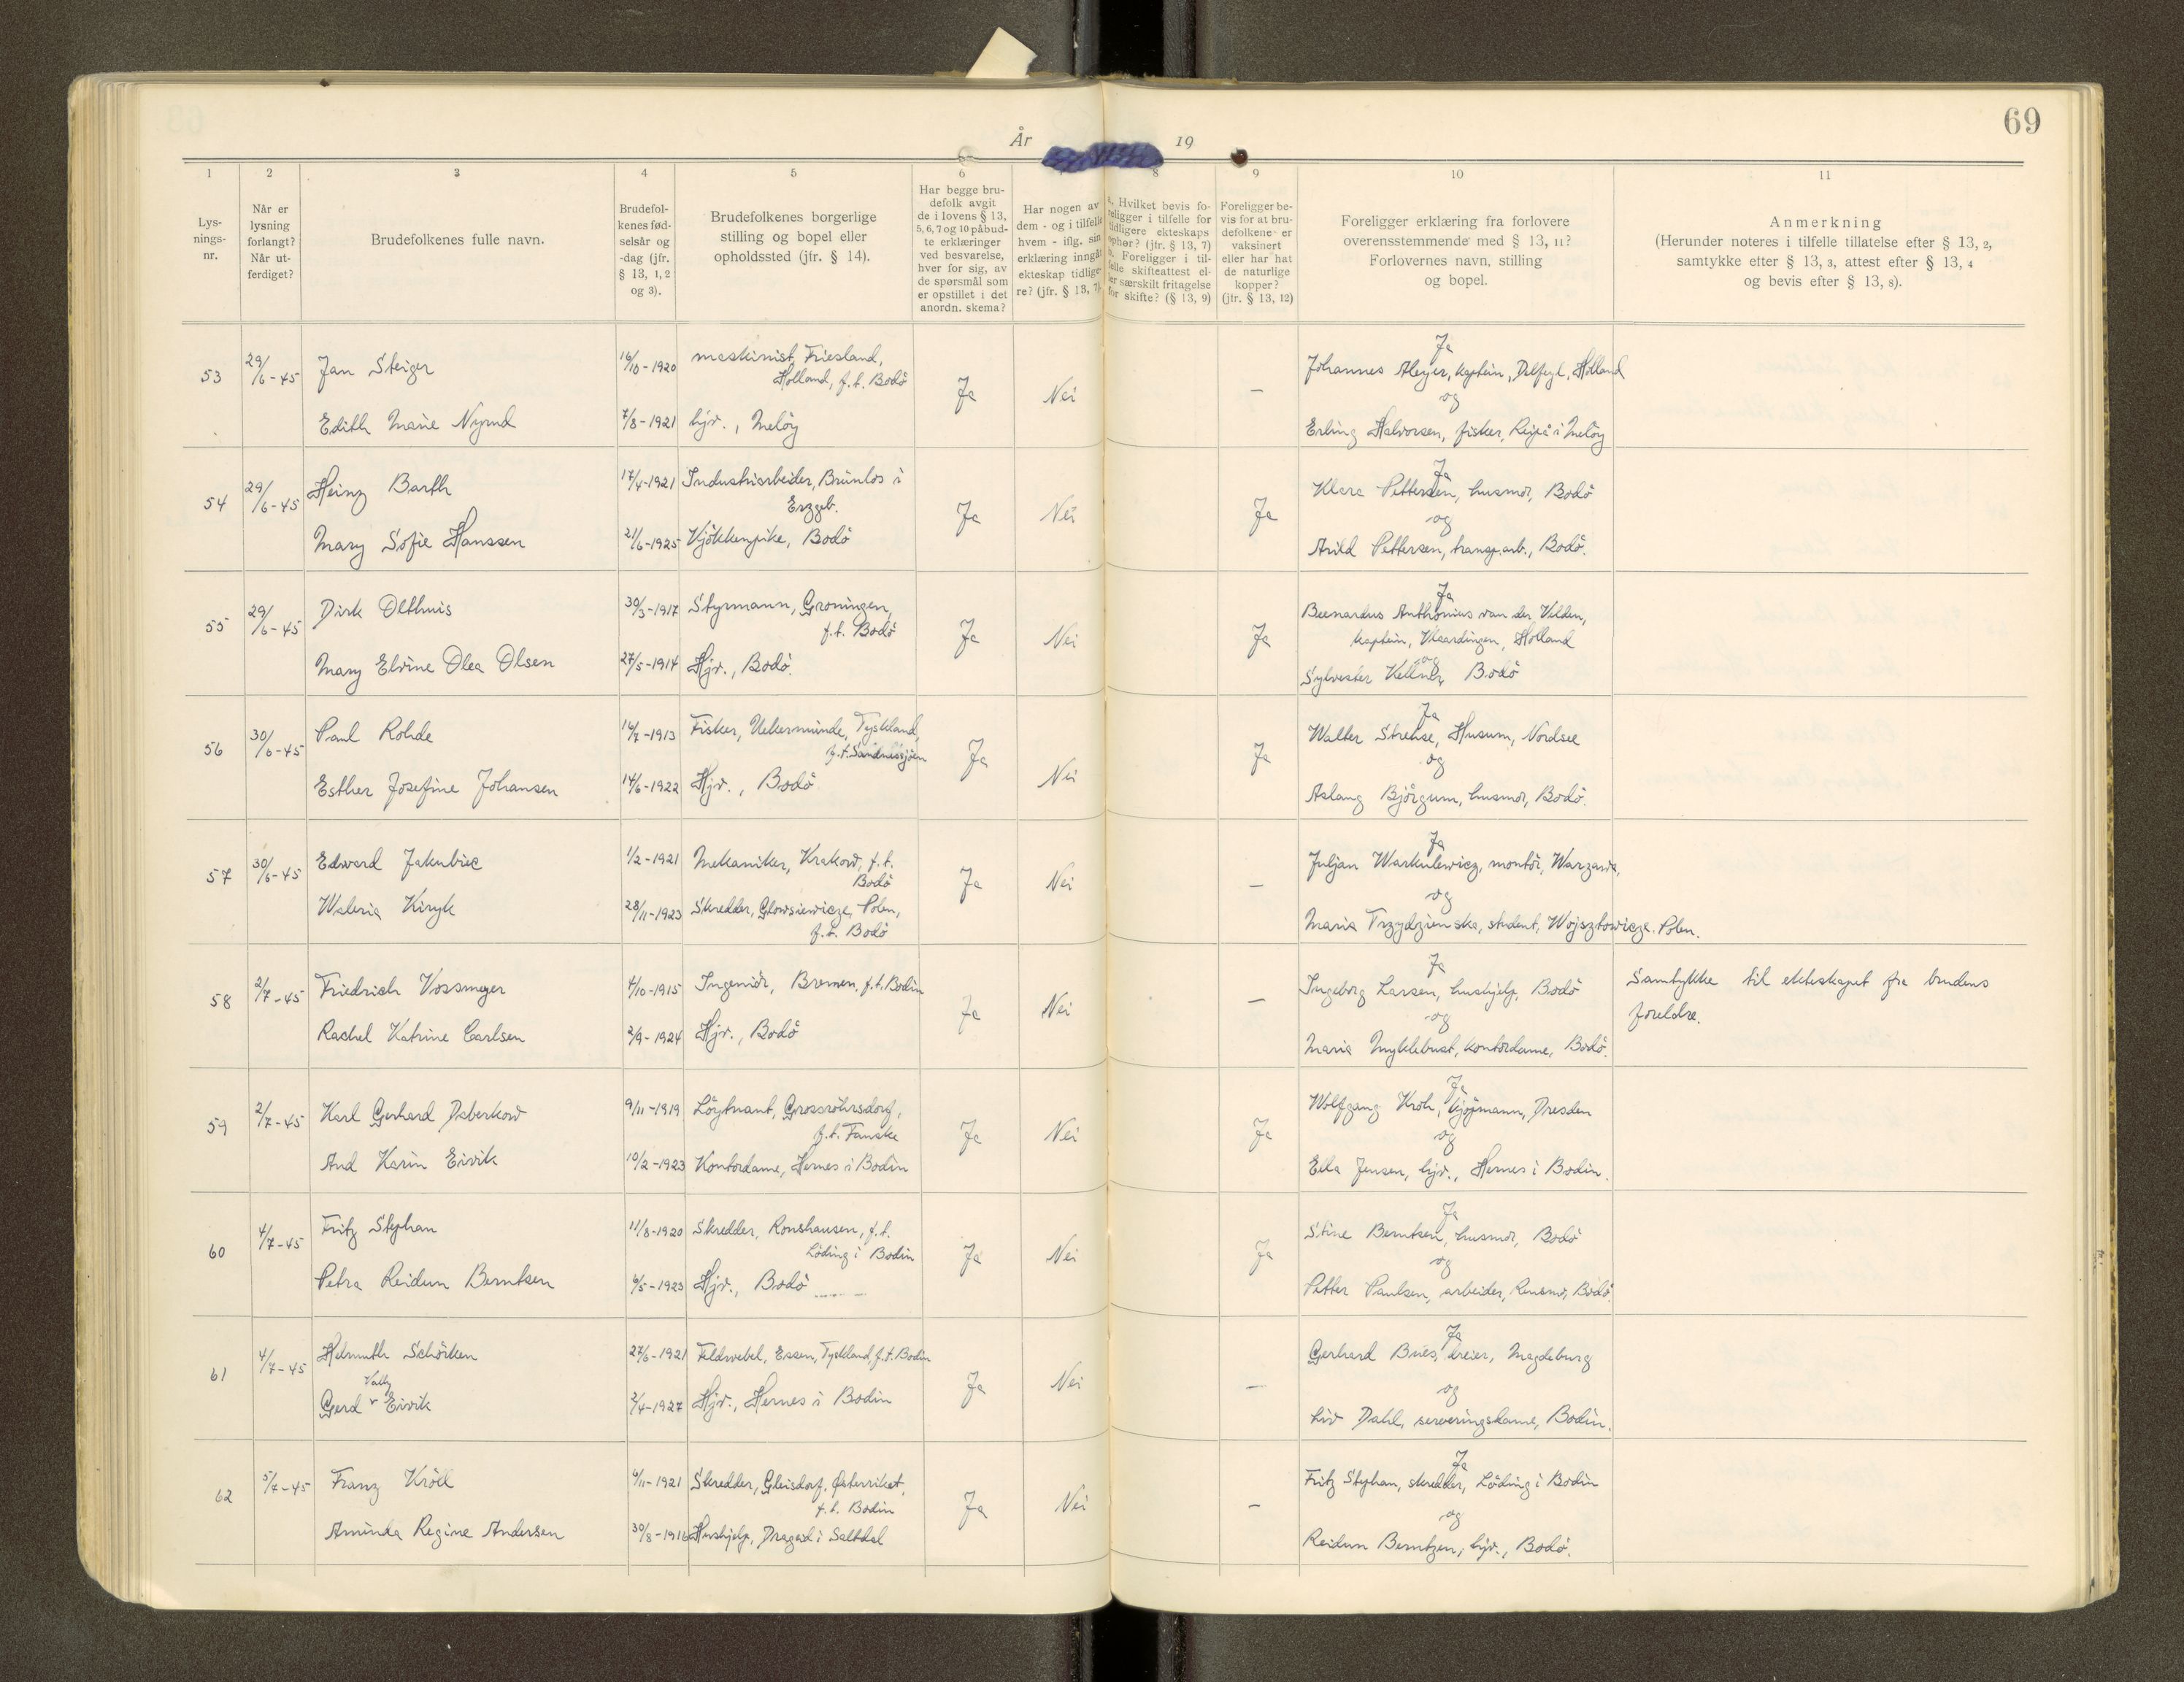 69
År 19
1 2 3 4 5 6 8 9 10 11
Lys-
nings-
nr.
Når er
lysning
forlangt?
Når ut-
ferdiget?
Brudefolkenes fulle navn.
Brudefol-
kenes fød-
selsår og
-dag (jfr.
§ 13, 1, 2
og 3).
Brudefolkenes borgerlige
stilling og bopel eller
opholdssted (jfr. § 14).
Har begge bru-
defolk avgit
de i lovens § 13,
5, 6, 7 og 10 påbud-
te erklæringer
ved besvarelse,
hver for sig, av
de spørsmål som
er opstillet i det
anordn. skema?
Har nogen av
dem - og i tilfelle
hvem - iflg. sin
erklæring inngåt
ekteskap tidlige-
re? (jfr. § 13, 7)
a. Hvilket bevis fo-
religger i tilfelle for
tidligere ekteskaps
ophør? (jfr. § 13, 7)
b. Foreligger i til-
felle skifteattest el-
ler særskilt fritagelse
for skifte? (§ 13, 9)
Foreligger be-
vis for at bru-
defolkene er
vaksinert
eller har hat
de naturlige
kopper?
(jfr. § 13, 12)
Foreligger erklæring fra forlovere
overensstemmende med § 13, 11?
Forlovernes navn, stilling
og bopel.
Anmerkning
(Herunder noteres i tilfelle tillatelse efter § 13, 2,
samtykke efter § 13, 3, attest efter § 13, 4
og bevis efter § 13, 8).
53 29/6-45 Jan Steiger 16/10-1920 maskinist, Friesland,
Holland, f.t. Bodö Ja Nei –
Edith Marie 7/8-1921 hjv., Melöy
Ja
Johannes Meyer, kaptein, Delfzyl, Holland
og
Erling Halvorsen, fisker, Reipå i Melöy
54 29/6-45 Heinz Barth 17/4-1921 Industriarbeider, Brünlos i
Erzgeb. Ja Nei Ja
Mary Sofie Hanssen 21/6-1925 Kjökkenpike, Bodö
Ja
Klara Pettersen, husmor, Bodö
og
Arild Pettersen, transp.arb., Bodö.
55 29/6-45 Dirk Olthuis 30/3-1917 Styrmann, Groningen,
f.t. Bodö Ja Nei Ja
Mary Elvine Olea Olsen 27/5-1914 Hjv., Bodö.
Ja
Bernardus Anthonius van der Velden,
kaptein, Vlaardingen, Holland
og
Sylvester Bodö
56 30/6-45 Paul Rohde 16/7-1913 Fisker, Uekermünde, Tyskland,
f.t. Sandnessjöen Ja Nei Ja
Esther Josefine Johansen 14/6-1922 Hjv., Bodö
Ja
Walter Strehse, Husum, Nordsee
og
Aslaug Björgum, husmor, Bodö.
57 30/6-45 Edward Jakubiec 1/2-1921 Mekaniker, Krakow, f.t.
Bodö Ja Nei –
Waleria Kiryk 28/11-1923 Skredder, Glowsiewicze, Polen,
f.t. Bodö
Ja
Juljan Warkulewicz, montör, Warzawa,
og
Maria Trzydzienska, student, Wojsztowicze. Polen.
58 2/7-45 Friedrich Vossmeyer 4/10-1915 Ingeniör, Bremen, f.t. Bodin
Ja Nei –
Rachel Katrine Carlsen 2/9-1924 Hjv., Bodö
Ja
Ingeborg Larsen, hushjelp, Bodö
og
Maria Myklebust, kontordame, Bodö.
Samtykke til ekteskapet fra brudens
foreldre.
59 2/7-45 Karl Gerhard Daberkow 9/11-1919 Löytnant, Grossröhrsdorf,
f.t. Fauske Ja Nei Ja
Aud Karin Eivik 10/2-1923 Kontordame, Hernes i Bodin
Ja
Wolfgang Kroh, kjöpmann, Dresden
og
Ella Jensen, hjv., Hernes i Bodin.
60 4/7-45 Fritz Stephan 11/8-1920 Skredder, Ronshausen, f.t.
Löding i Bodin Ja Nei Ja
Petra Reidun Berntsen 6/5-1923 Hjv., Bodö
Ja
Stine Berntsen, husmor, Bodö
og
Petter Paulsen, arbeider, Rensmo, Bodö.
61 4/7-45 Helmuth Schörken 27/6-1921 Feldwebel, Essen, Tyskland, f.t. Bodin
Ja Nei –
Vally
Gerd Eivik 2/4-1927 Hjv., Hernes i Bodin
Ja
Gerhard Bues, dreier, Magdeburg
og
Liv Dahl, serveringsdame, Bodin.
62 5/7-45 Franz Kröll 6/11-1921 Skredder, Gleisdorf, Østerriket,
f.t. Bodin Ja Nei –
Aminda Regine Andersen 30/8-1916 Hushjelp, Drageid i Saltdal
Ja
Fritz Stephan, skredder, Löding i Bodin
og
Reidun Berntzen, hjv., Bodö.